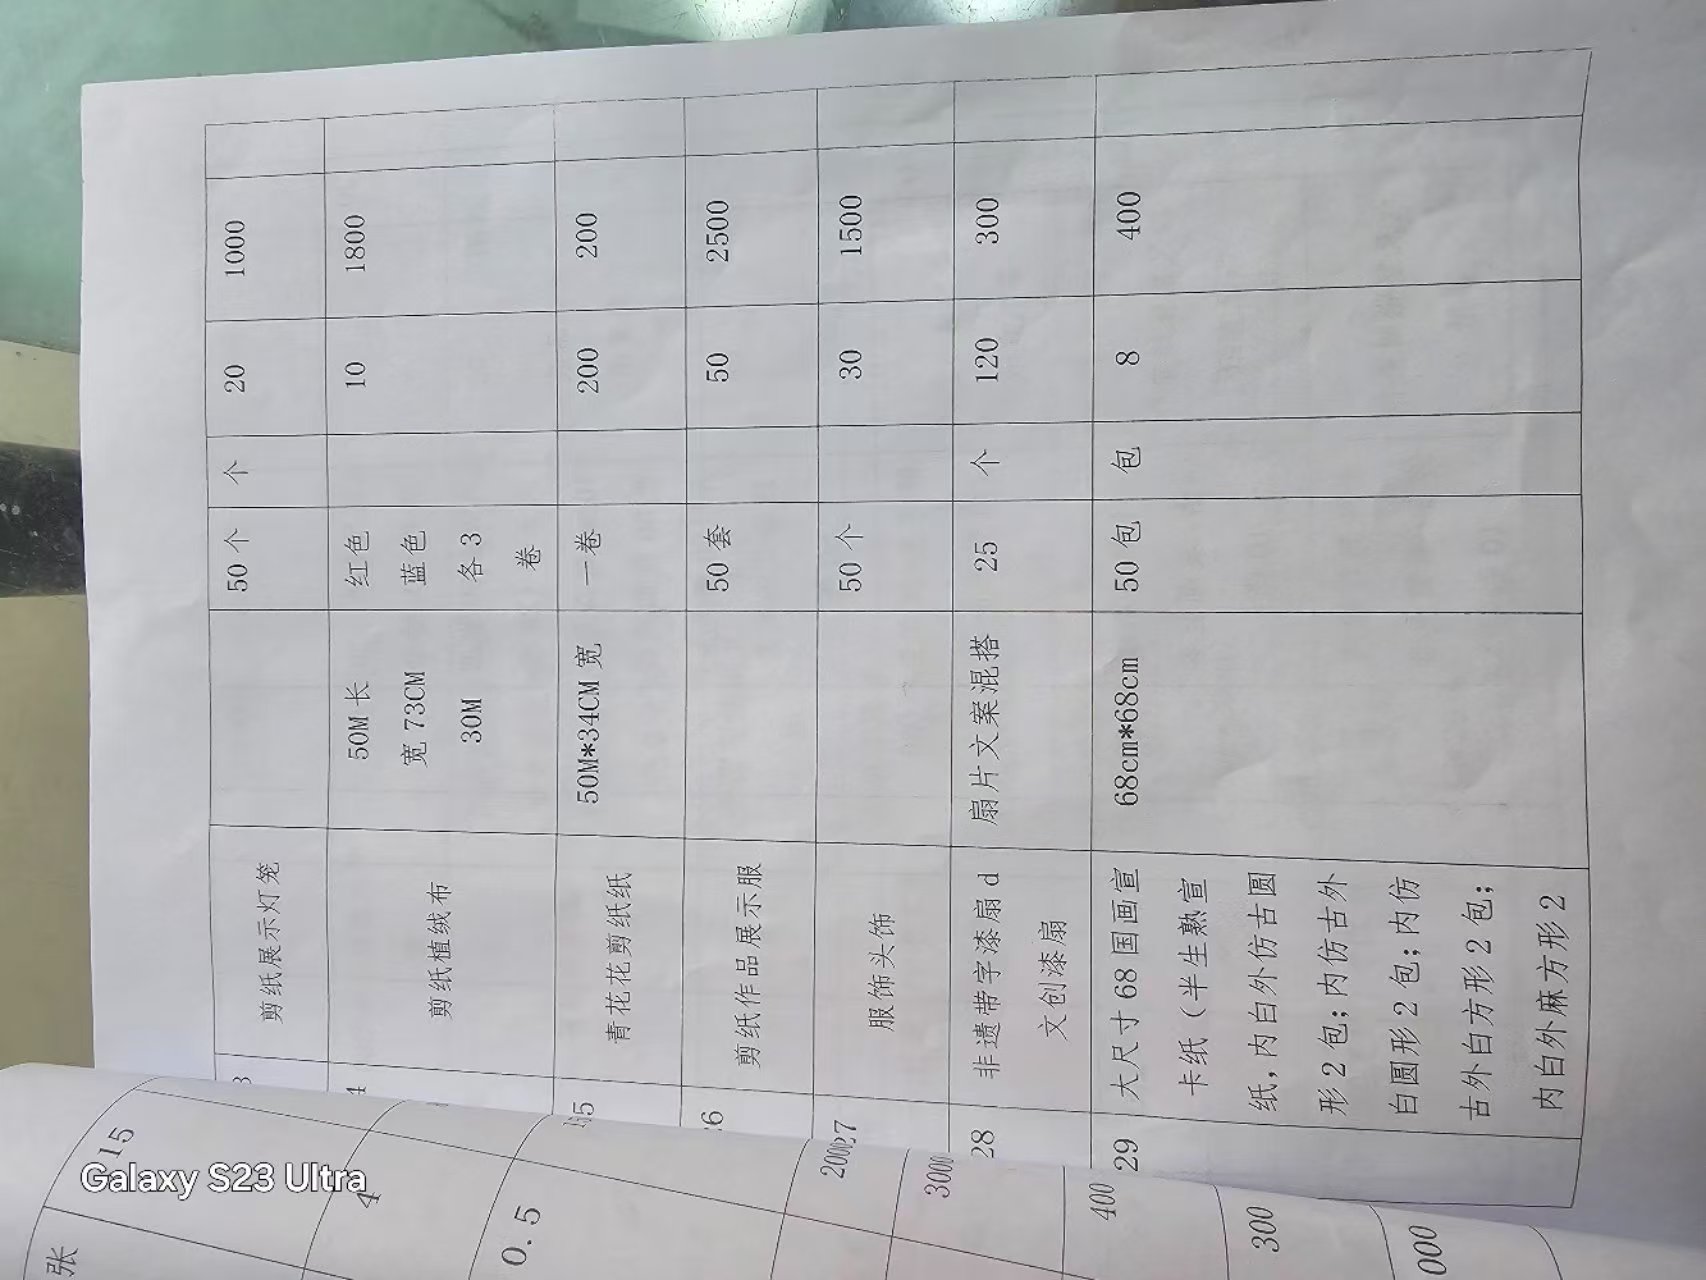 3 剪纸展示灯笼 50 个 个 20 1000
4 剪纸植绒布 50M 长 红色 10 1800
宽 73CM 蓝色
30M 各 3
卷
25 青花花剪纸纸 50M*34CM 宽 一卷 200 200
26 剪纸作品展示服 50 套 50 2500
27 服饰头饰 50 个 30 1500
28 非遗带字漆扇 d 扇片文案混搭 25 个 120 300
文创漆扇
29 大尺寸 68 国画宣 68cm*68cm 50 包 包 8 400
卡纸（半生熟宣
纸，内白外仿古圆
形 2 包；内仿古外
白圆形 2 包；内仿
古外白方形 2 包；
内白外麻方形 2
张 15
4
0.5
200
3000
400
300
000
Galaxy S23 Ultra